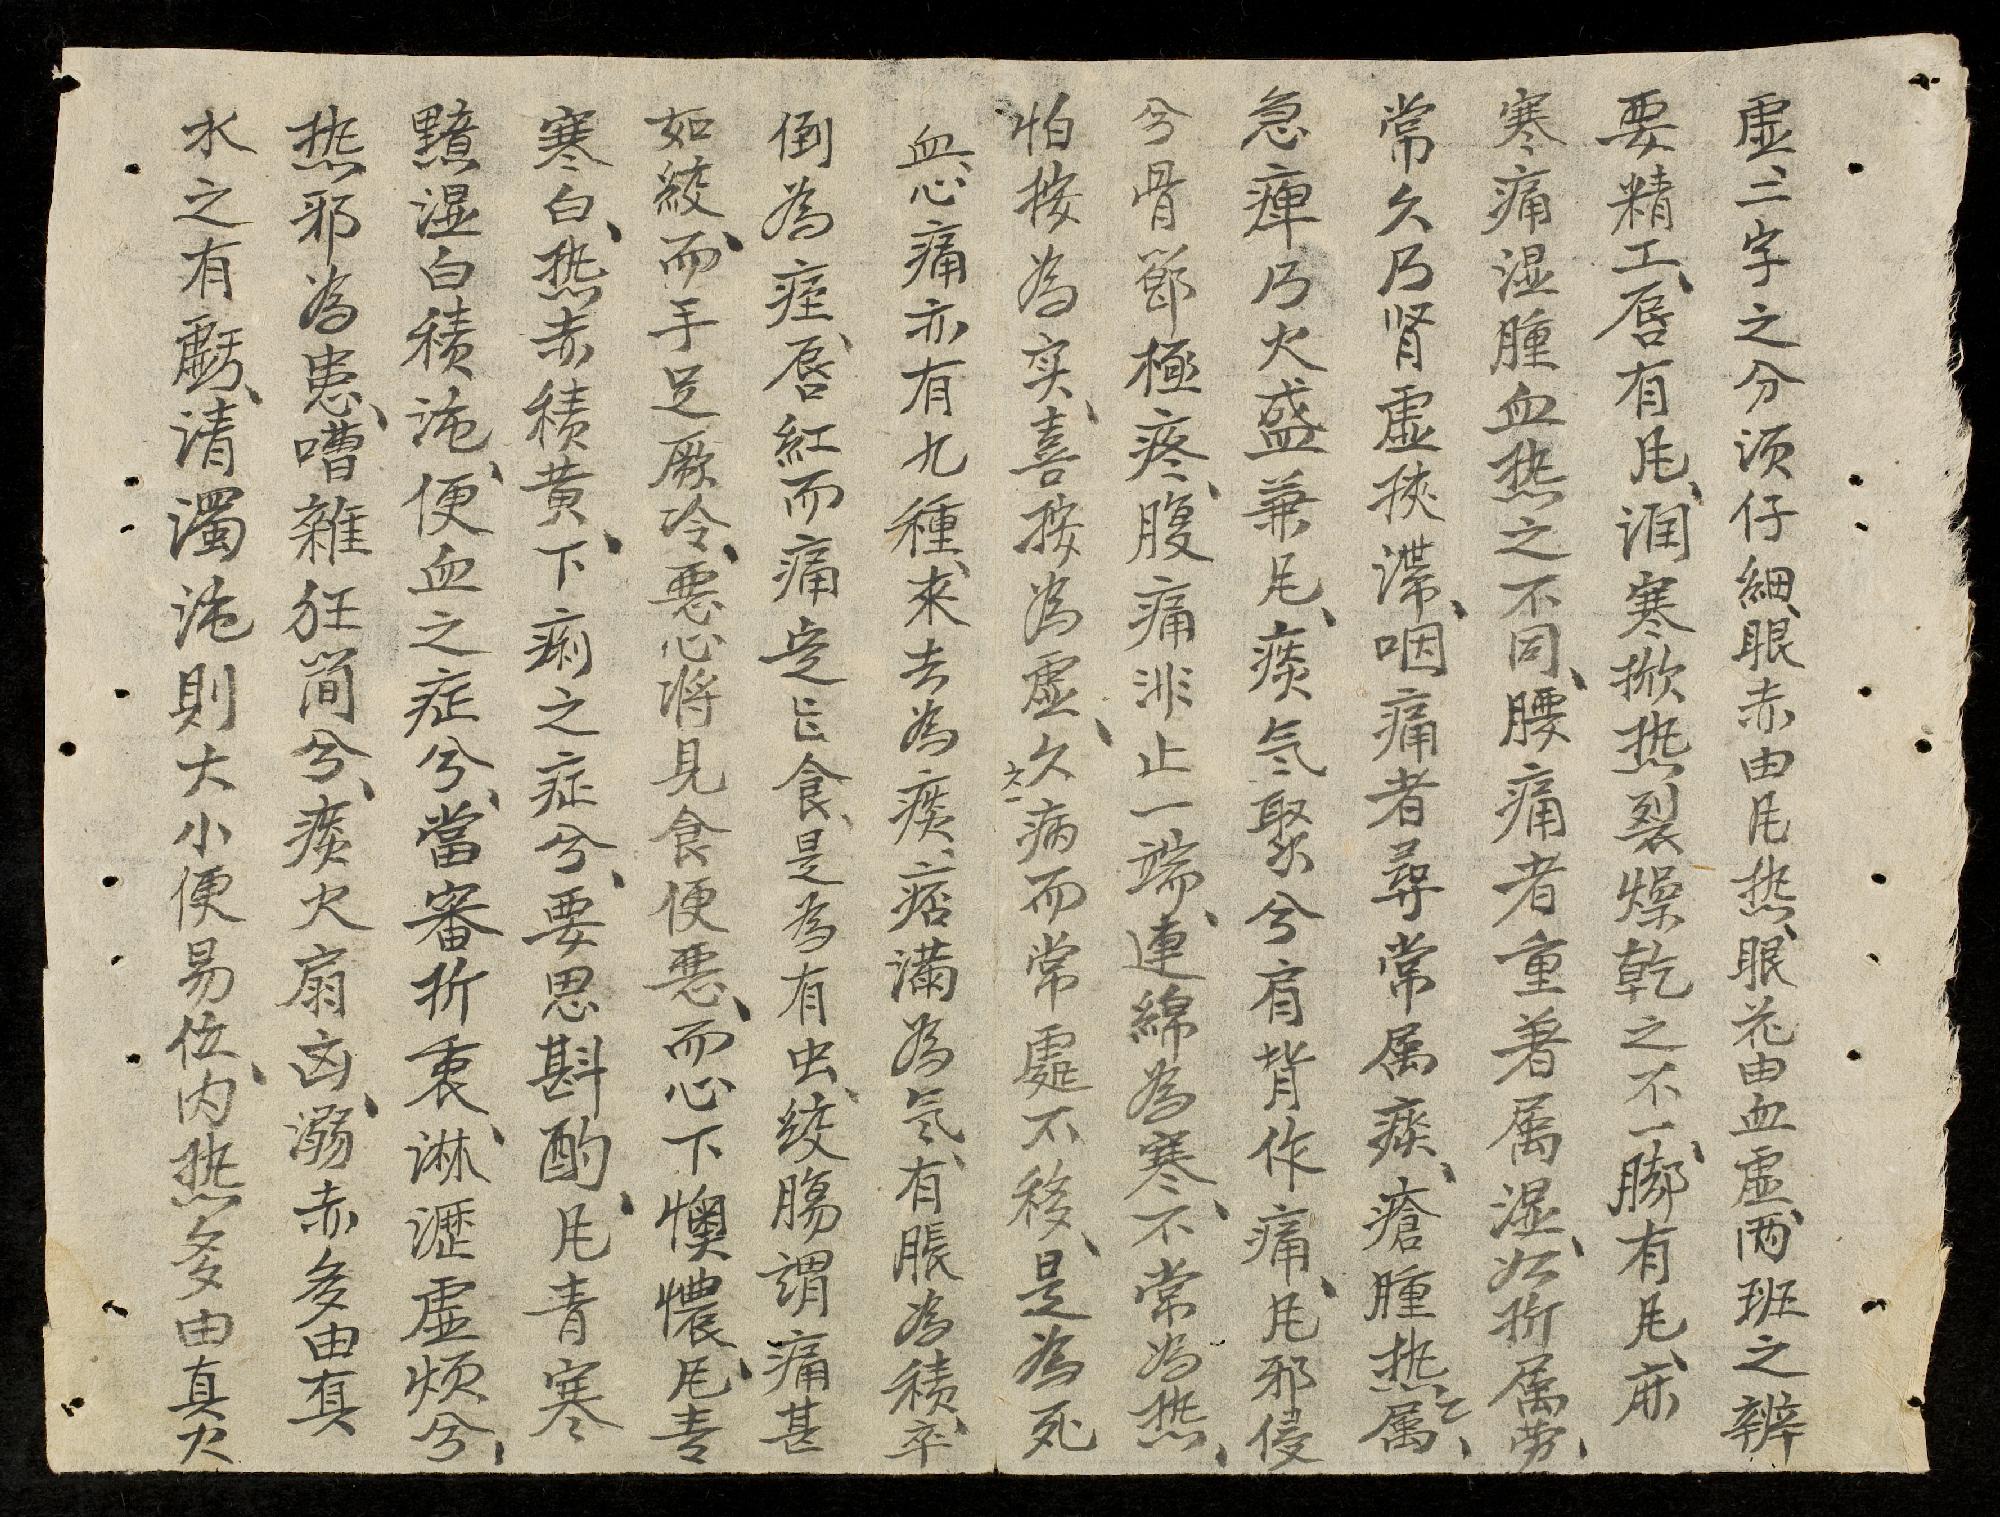 虚二字之分须仔細、眼赤由凨热、眼花由血虚、两班之辨
要精工、唇有凨、润寒掀热裂燥乾之不一、腳有凨、麻
寒痛湿腫血热之不同、腰痛者重著属湿、如折属劳、
常久乃肾虚挾滯、咽痛者尋常属痰、瘡腫热属、
急痺乃火盛兼凨、痰気聚兮肩背作痛、凨邪侵
兮骨節極疼、腹痛非止一端、連綿為寒、不常為热、
怕按為实、喜按為虚、久病而常處不移、是為死
血、心痛亦有九種、來去為痰、痞滿為気、有脹為積、卒
倒為痓、唇紅而痛定能食、是為有虫、絞腸謂痛甚
如絞、而手足厥冷、悪心将見食便悪、而心下懊憹、凨青
寒白、热赤積黄、下痢之症兮、要思斟酌、凨青寒
黯湿白積沌、便血之症兮、當審折衷、淋瀝虚烦兮、
热邪為患、嘈雜狂简兮、痰火扇凶、溺赤多由真
水之有虧、清濁沌則大小便易位、内热多由真火